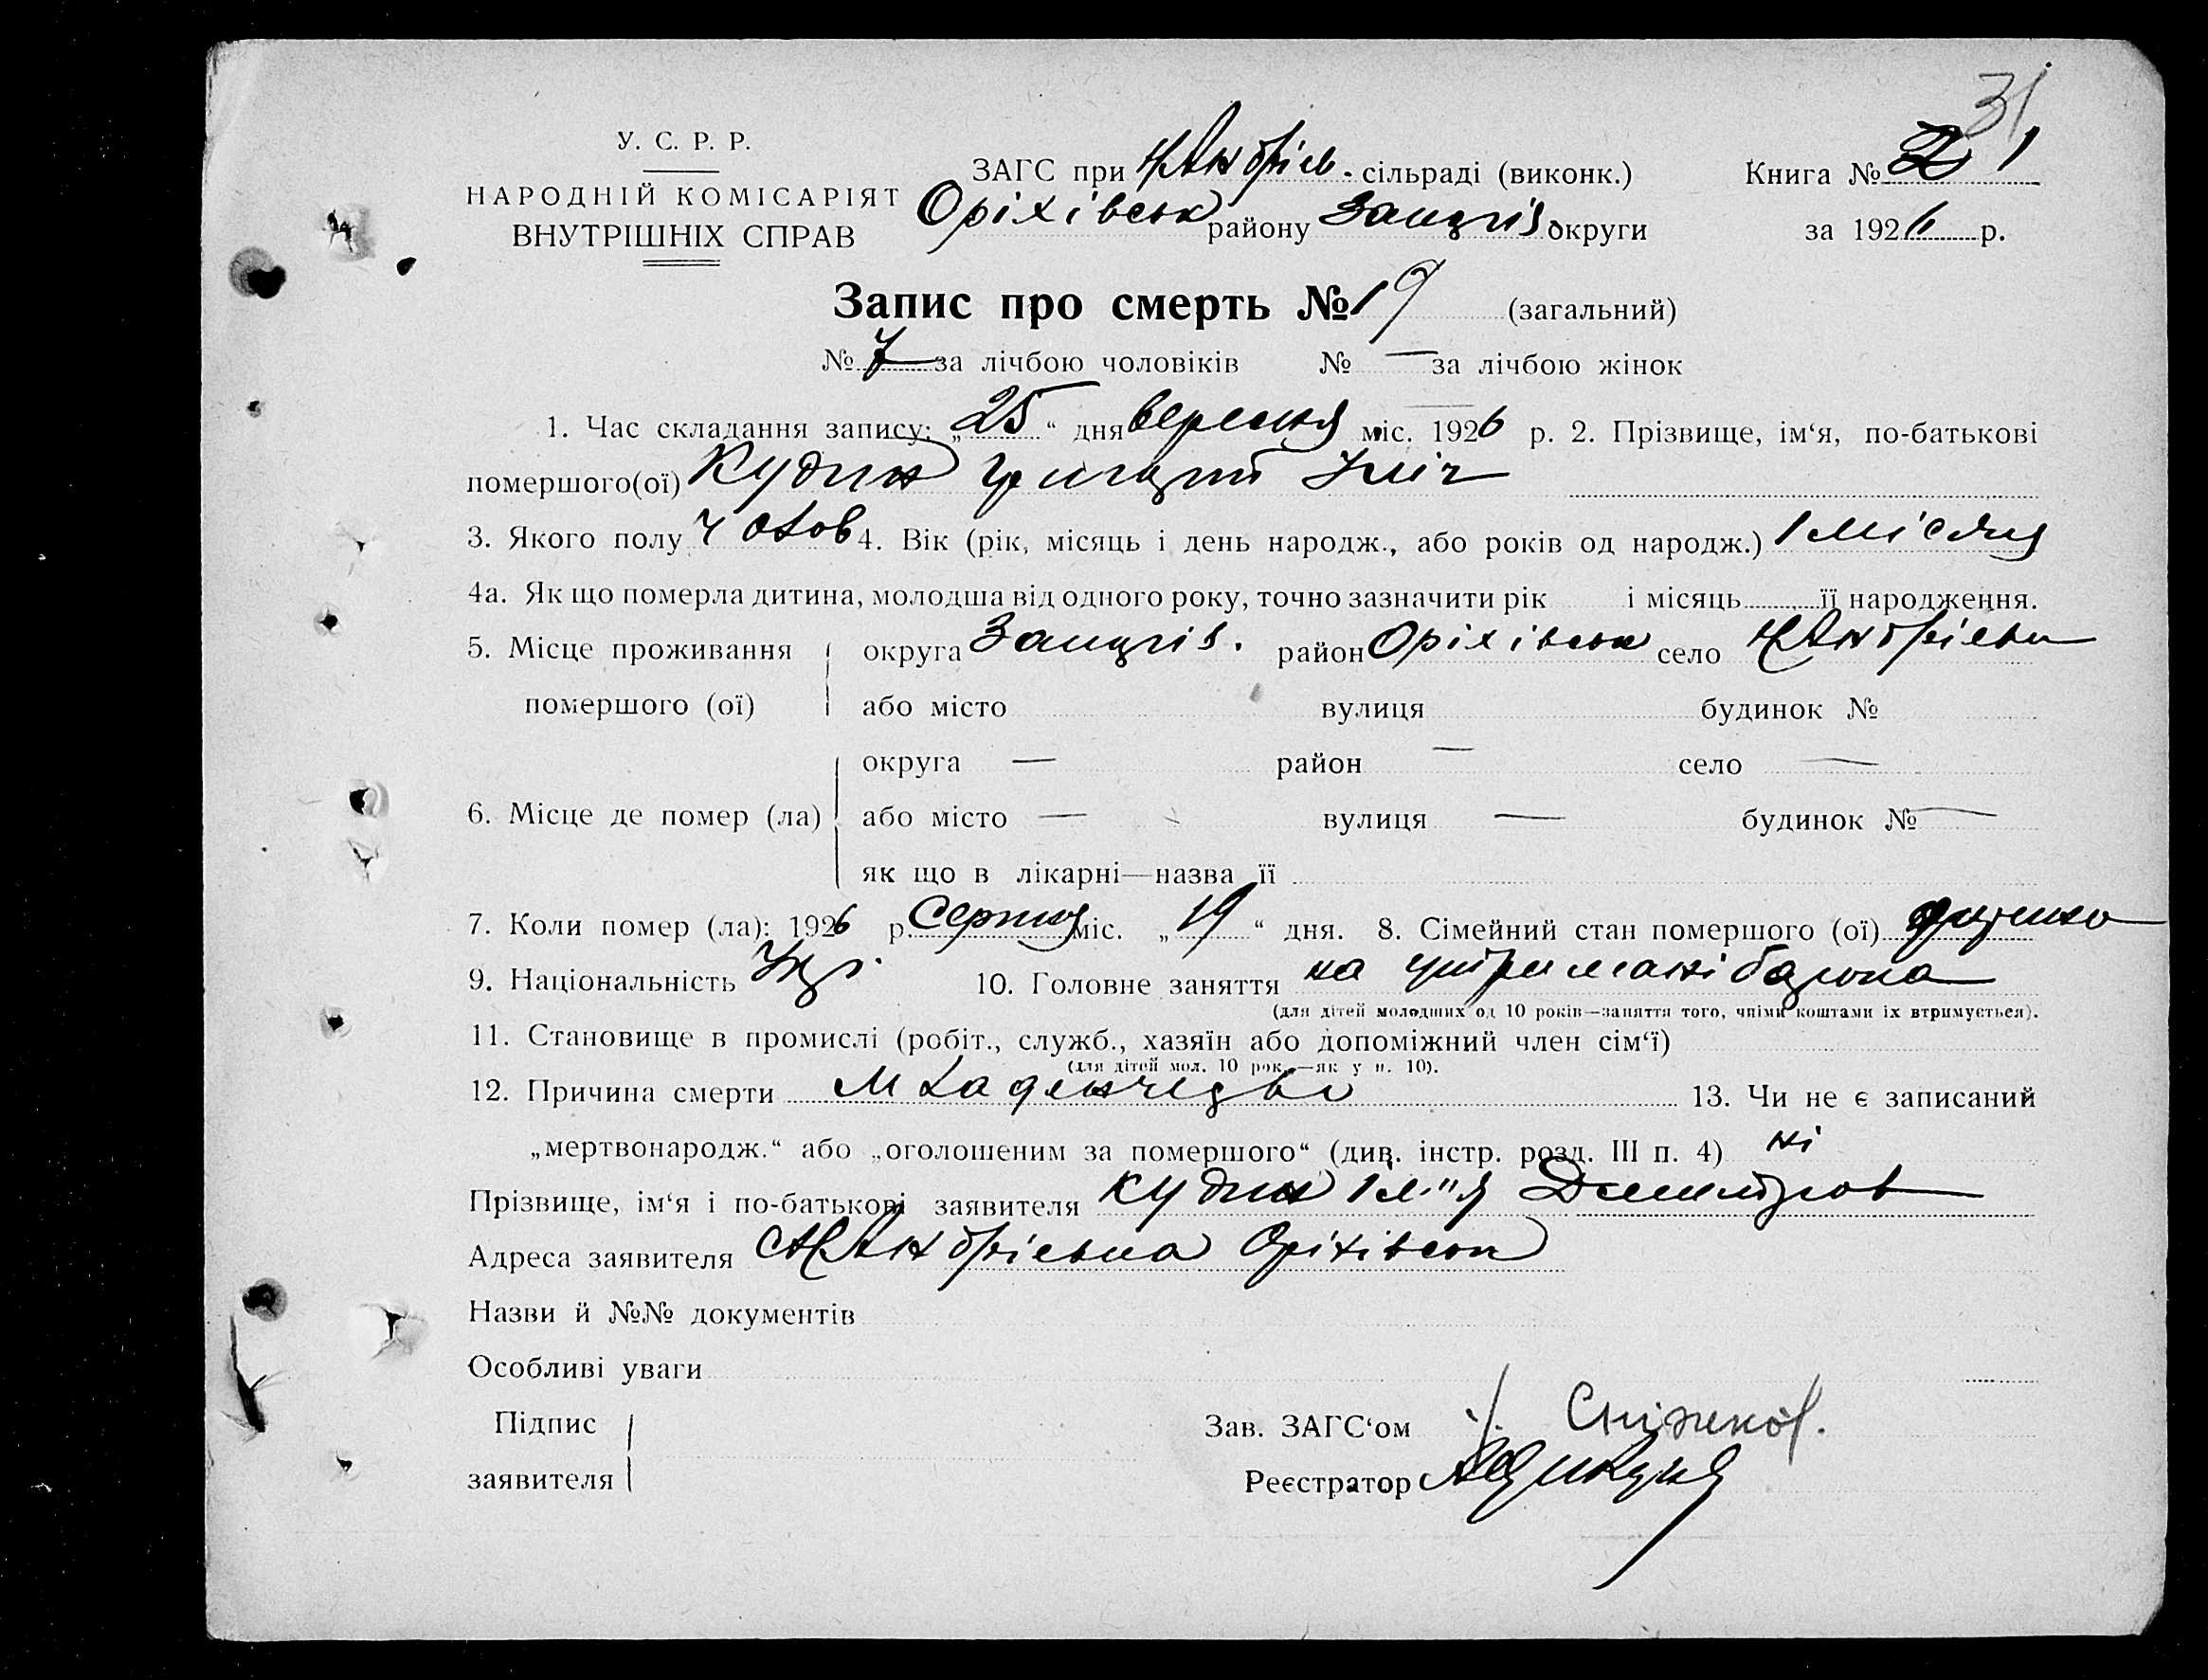 31
У. С. Р. Р.
НАРОДНІЙ КОМІСАРІЯТ
ВНУТРІШНІХ СПРАВ
ЗАГС при Н Андрієв. сільраді (виконк.)
Оріхівськ району Запоріз округи
Книга № 1
за 1926 р.
Запис про смерть № 19 (загальний)
№ 7 за лічбою чоловіків № — за лічбою жінок
1. Час складання запису: „25“ дня вересня міс. 1926 р. 2. Прізвище, ім‘я, по-батькові
помершого(ої) Кудин Григорій Ілліч
3. Якого полу Чолов 4. Вік (рік, місяць і день народж., або років од народж.) 1 місяця
4а. Як що померла дитина, молодша від одного року, точно зазначити рік і місяць її народження.
5. Місце проживання округа Запоріз. район Оріхівськ село Н Андрієвка
помершого (ої) або місто вулиця будинок №
округа — район — село —
6. Місце де помер (ла) або місто — вулиця — будинок № —
як що в лікарні—назва її
7. Коли помер (ла): 1926 р. Серпня міс. „19“ дня. 8. Сімейний стан помершого (ої) дитина
9. Національність Укр. 10. Головне заняття на утриманні батька
(для дітей молодших од 10 років—заняття того, чиїми коштами їх втримується).
11. Становище в промислі (робіт., служб., хазяїн або допоміжний член сім‘ї)
(для дітей мол. 10 рок.—як у п. 10).
12. Причина смерти Младенчество 13. Чи не є записаний
„мертвонародж.“ або „оголошеним за помершого“ (див. інстр. розд. III п. 4) ні
Прізвище, ім‘я і по-батькові заявителя Кудин Ілля Дмитров
Адреса заявителя Н Андрієвка Оріхівськ
Назви й №№ документів
Особливі уваги
Підпис
заявителя
Зав. ЗАГС‘ом
Реєстратор